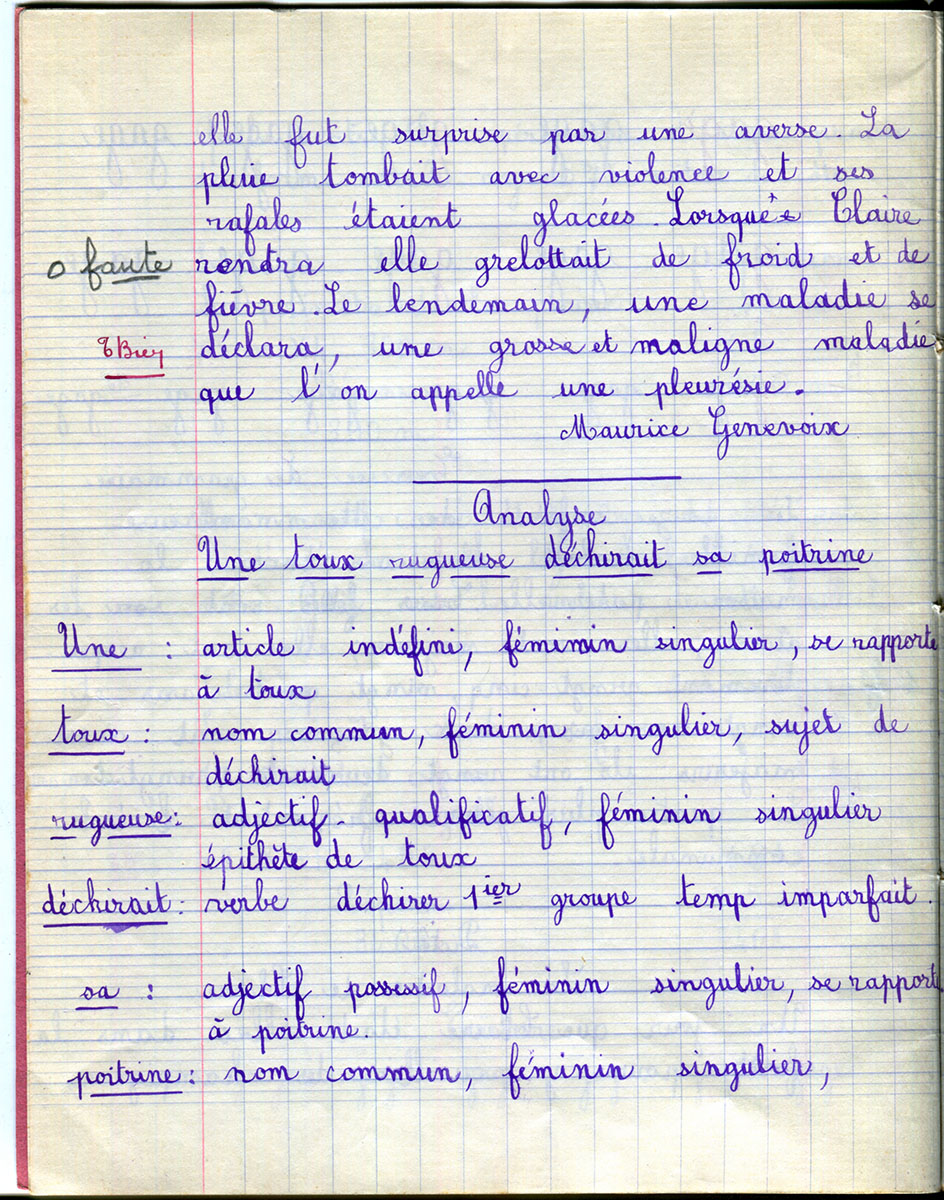 elle fut surprise par une averse. La
pluie tombait avec violence et ses
rafales étaient glacées. Lorsque Claire
0 faute rentra elle grelottait de froid et de
fièvre. Le lendemain, une maladie se
TBien déclara, une grosse et maligne maladie
que l'on appelle une pleurésie.
Maurice Genevoix
Analyse
Une toux rugueuse déchirait sa poitrine
Une : article indéfini, féminin singulier, se rapporte
à toux
toux : nom commun, féminin singulier, sujet de
déchirait
rugueuse : adjectif-qualificatif, féminin singulier
épithète de toux
déchirait : verbe déchirer 1ier groupe temp imparfait.
sa : adjectif possessif, féminin singulier, se rapporte
à poitrine.
poitrine : nom commun, féminin singulier,